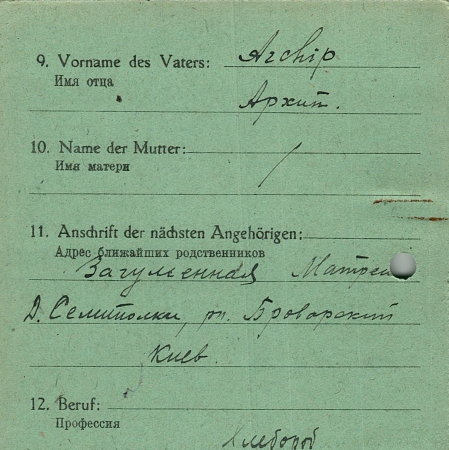 9. Vorname des Vaters: Archip
Имя отца
Архип.
10. Name der Mutter: /
Имя матери
11. Anschrift der nächsten Angehörigen:
Адрес ближайших родственников
Загуменная
Д. Семиполки, рн. Броварский
Киев.
12. Beruf:
Профессия
Хлебороб